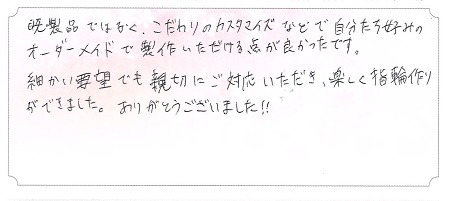 既製品ではなく、こだわりのカスタマイズなどで自分たち好みの
オーダーメイドで製作いただける点が良かったです。
細かい要望でも親切にご対応いただき、楽しく指輪作り
ができました。ありがとうございました!!